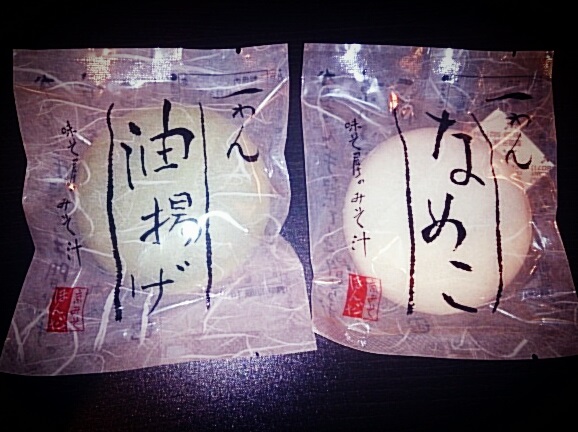 一わん
油揚げ
味噌屋のみそ汁
一わん
なめこ
味噌屋のみそ汁